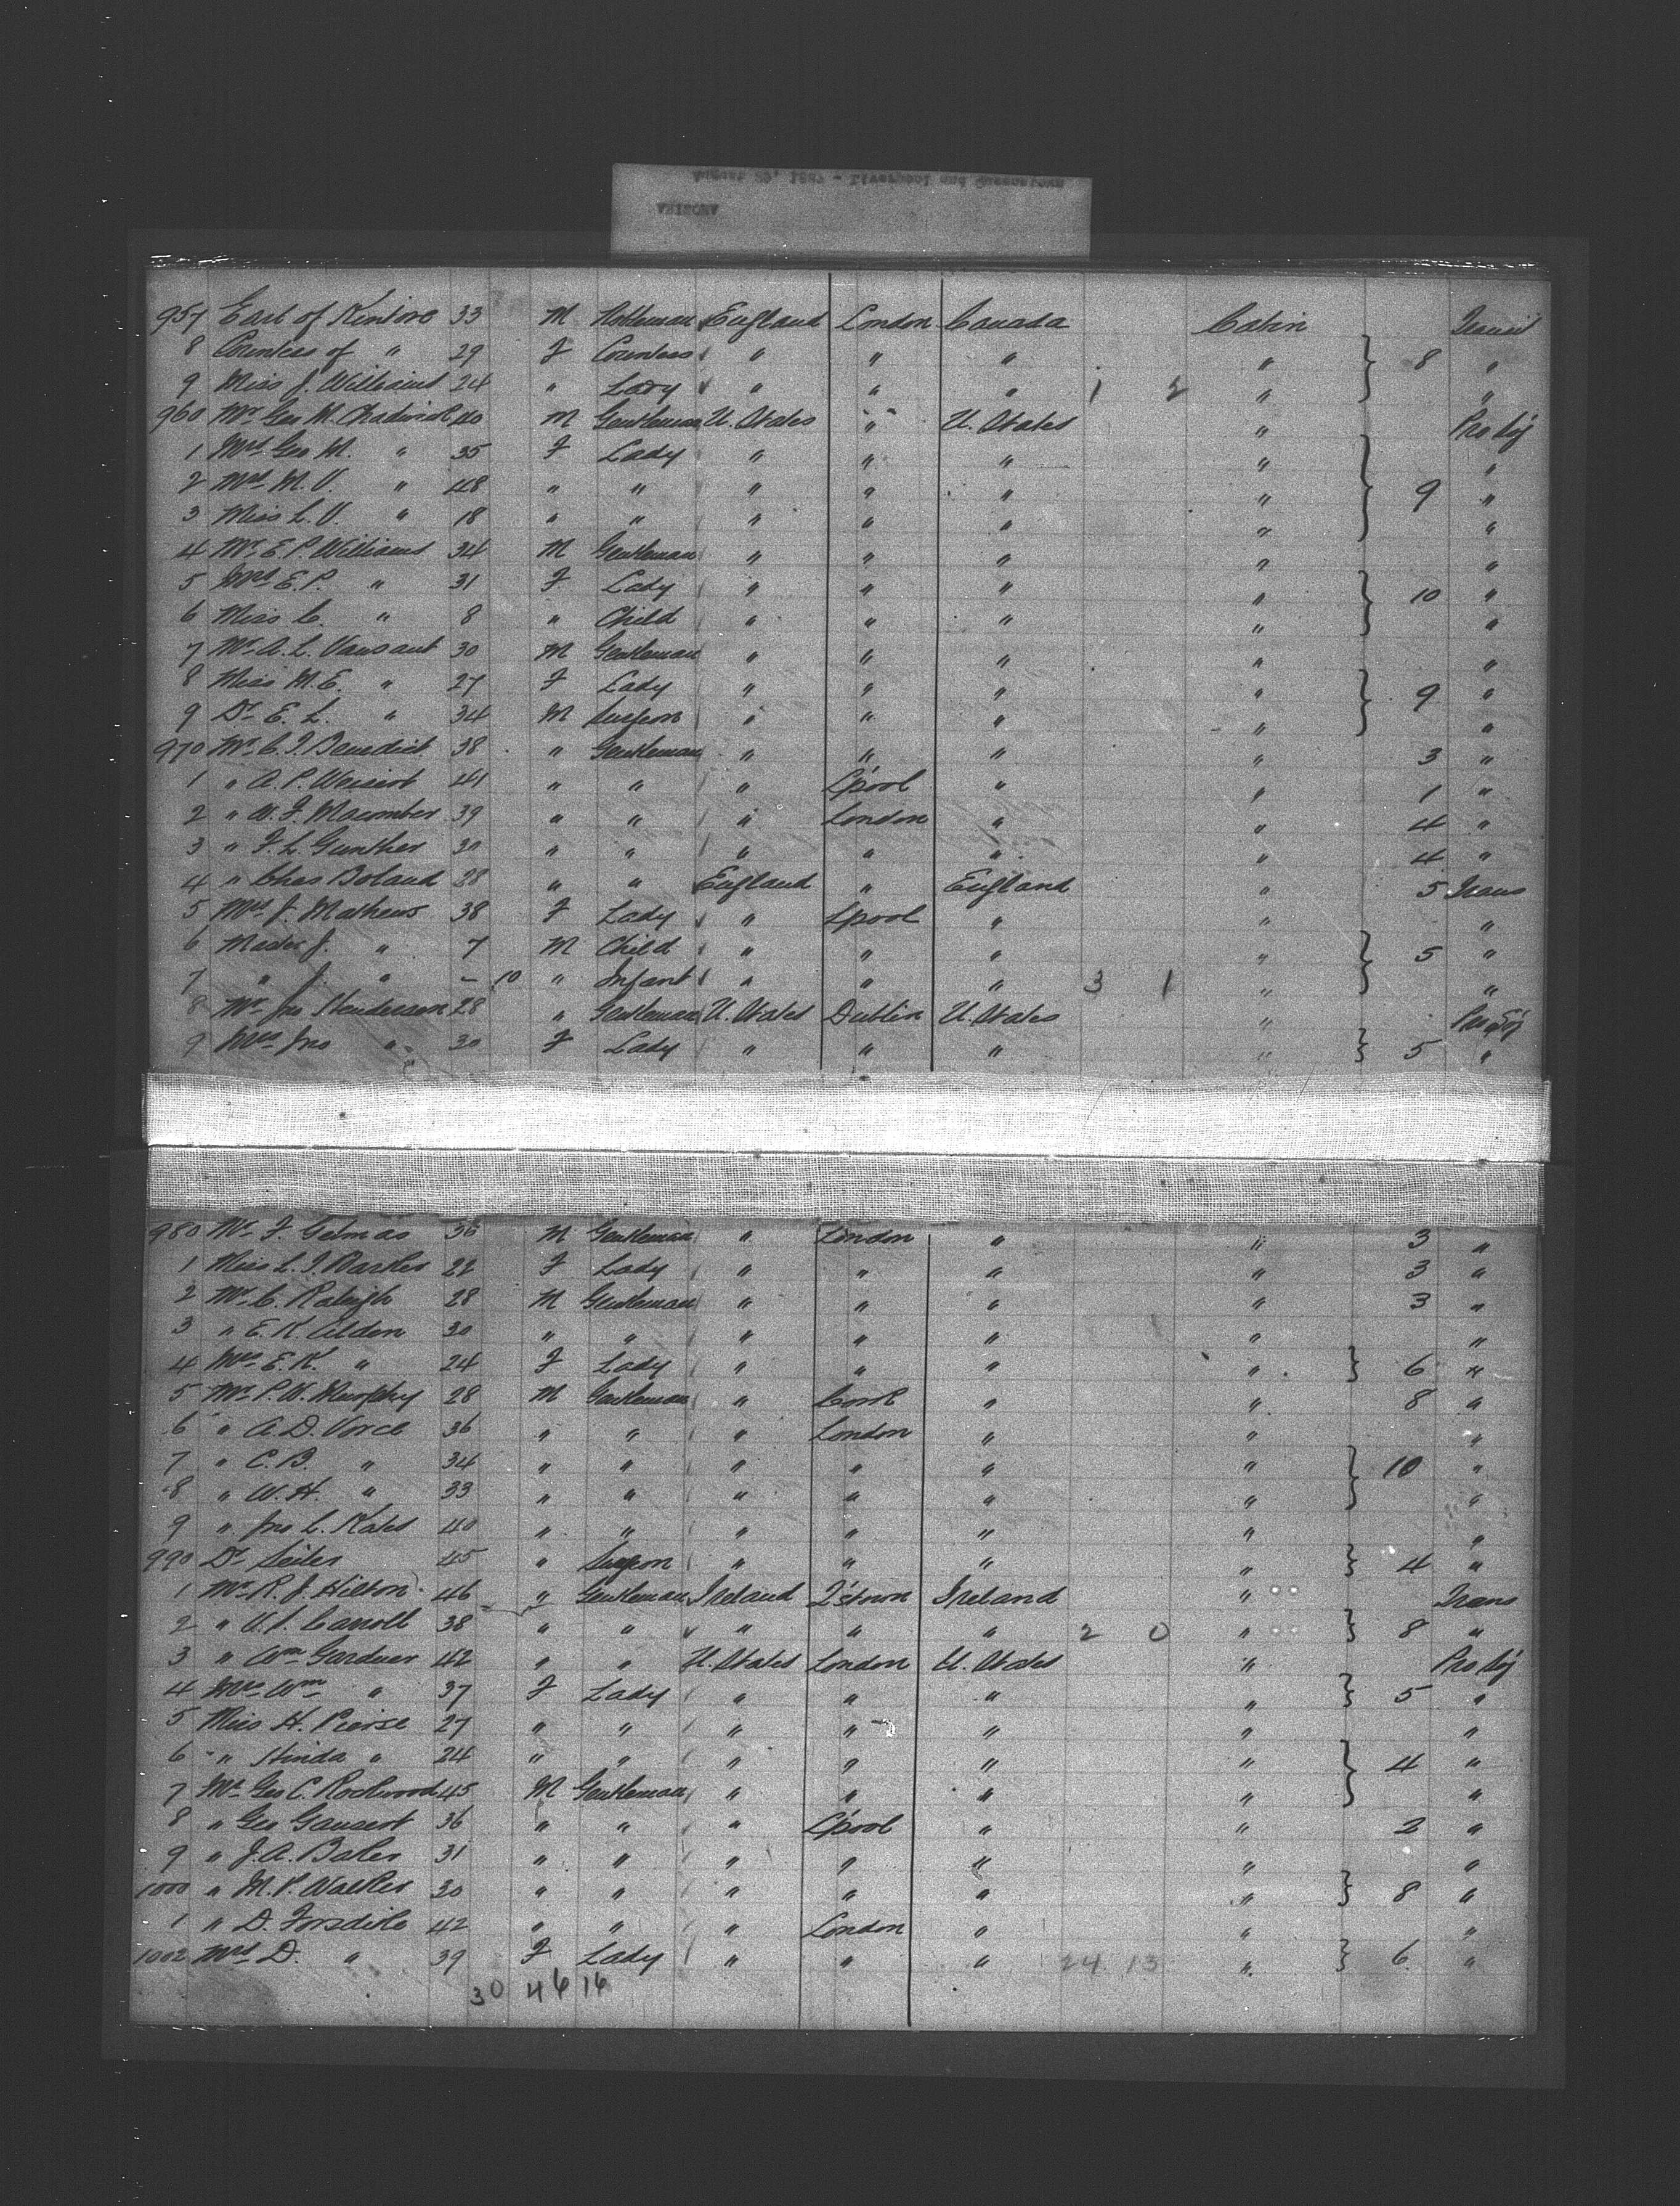 August 29, 1887 - Liverpool and Queenstown
ARIZONA
957 Earl of Kintore 33 M Nobleman England London Canada Cabin Transit
8 Countess of " 29 F Countess " " " " 8 "
9 Miss J. Williams 24 " Lady " " " 1 2 " "
960 Mr Geo M. Chadwick 40 M Gentleman U. States " U. States " Pro Soj
1 Mrs Geo M. " 35 F Lady " " " " "
2 Mrs M. V. " 48 " " " " " " 9 "
3 Miss L. V. " 18 " " " " " " "
4 Mr E. P. Williams 34 M Gentleman " " " " "
5 Mrs E. P. " 31 F Lady " " " " 10 "
6 Miss C. " 8 " Child " " " " "
7 Mr A. L. Vansant 30 M Gentleman " " " " "
8 Miss M. E. " 27 F Lady " " " " 9 "
9 Dr E. L. " 34 M Surgeon " " " " "
970 Mr C. J. Benedict 38 " Gentleman " " " " 3 "
1 " A. P. 41 " " " L'pool " " 1 "
2 " W. F. Macomber 39 " " " London " " 4 "
3 " F. L. Gunther 30 " " " " " " 4 "
4 " Chas Boland 28 " " England " England " 5 Trans
5 Mrs J. Mathews 38 F Lady " L'pool " " "
6 Master J. " 7 M Child " " " " 5 "
7 " J. " - 10 " Infant " " " 3 1 " "
8 Mr Jno Henderson 28 " Gentleman U. States Dublin U. States " Pro Soj
9 Mrs Jno " 30 F Lady " " " " 5 "
980 Mr F. 36 M Gentleman " London " " 3 "
1 Miss L. J. Barker 22 F Lady " " " " 3 "
2 Mr C. Raleigh 28 M Gentleman " " " " 3 "
3 " E. K. Alden 30 " " " " " " "
4 Mrs E. K. " 24 F Lady " " " " 6 "
5 Mr P. W. Murphy 28 M Gentleman " Cork " " 8 "
6 " A. D. Vorce 36 " " " London " " "
7 " C. B. " 34 " " " " " " 10 "
8 " W. H. " 33 " " " " " " "
9 " Jno L. Kates 40 " " " " " " "
990 Dr Seiler 45 " Surgeon " " " " 4 "
1 Mr R. J. Hilton 46 " Gentleman Ireland Q'stown Ireland " Trans
2 " Carroll 38 " " " " " 2 0 " 8 "
3 " Wm Gardner 42 " " U. States London U. States " Pro Soj
4 Mrs Wm " 37 F Lady " " " " 5 "
5 Miss H. Peirse 27 " " " " " " "
6 " Hinda " 24 " " " " " " 4 "
7 Mr Geo C. Rockwood 45 M Gentleman " " " " "
8 " Geo 36 " " " L'pool " " 2 "
9 " J. A. Baker 31 " " " " " " "
1000 " M. P. Walker 30 " " " " " " 8 "
1 " D. Forsdike 42 " " " London " " "
1002 Mrs D. " 39 F Lady " " " 24 13 " 6 "
30 46 16